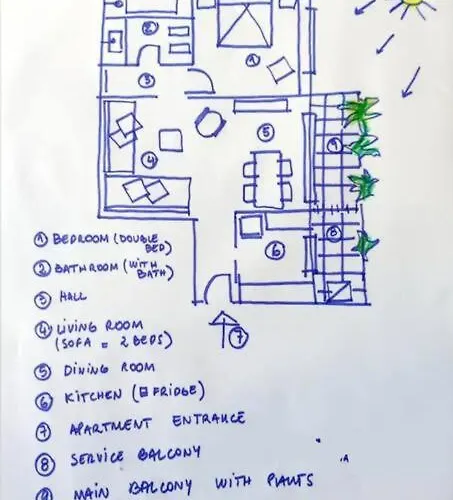 2
1
3
4
5
9
8
6
7
1 BEDROOM (DOUBLE
BED)
2 BATHROOM (WITH
BATH)
3 HALL
4 LIVING ROOM
(SOFA = 2 BEDS)
5 DINING ROOM
6 KITCHEN (FRIDGE)
7 APARTMENT ENTRANCE
8 SERVICE BALCONY
9 MAIN BALCONY WITH PLANTS